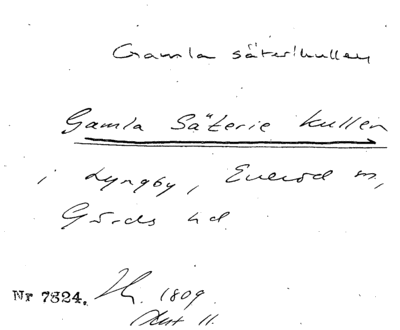 Gamla säterikullen
Gamla Säterie kullen
i Lyngby, Everöd m,
Gärds hd
Nr 7824. 1809
Akt 11.